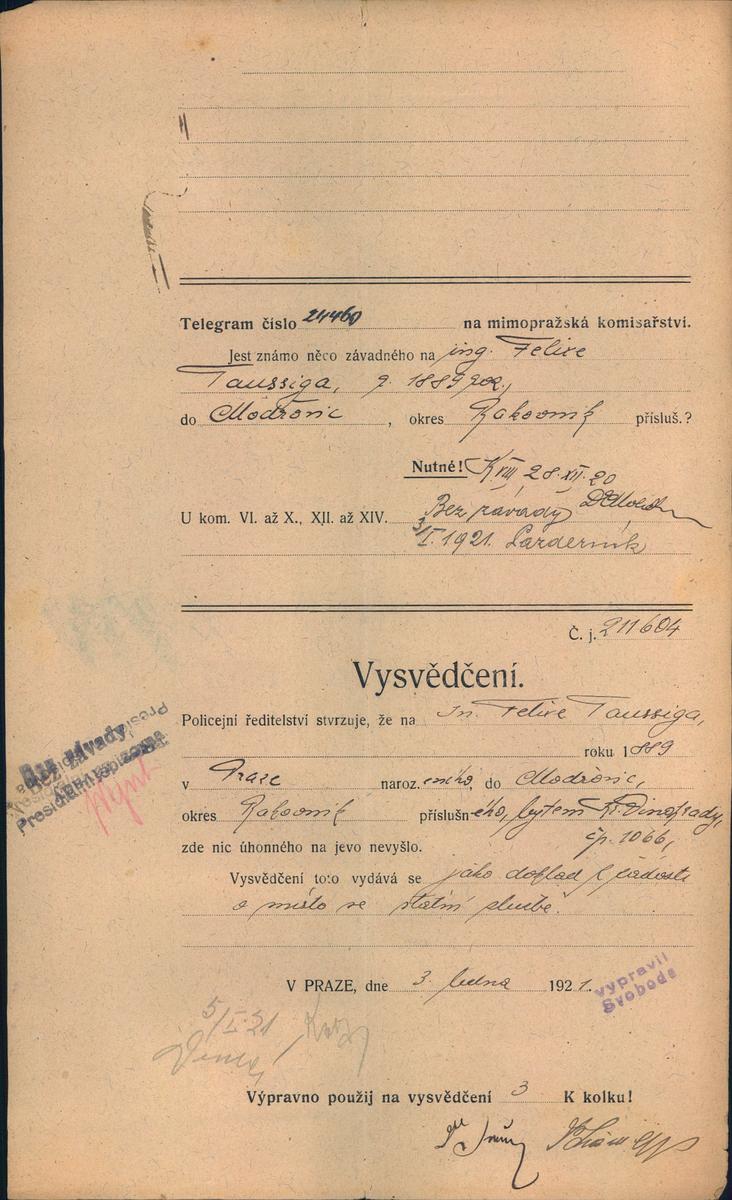 Telegram číslo 21460 na mimopražská komisařství.
Jest známo něco závadného na ing. Felixe
Taussiga, 1889
do Modřovic, okres Rakovník přísluš.?
Nutné! K. VIII 28.XII.20
U kom. VI. až X., XII. až XIV. Bez závady
3/I. 1921.
Č. j. 211604
Vysvědčení.
Policejní ředitelství stvrzuje, že na In. Felixe Taussiga,
roku 1889
v Praze naroz.eného, do Modřovic,
okres Rakovník příslušn-ého, bytem Kr. Vinohrady,
čp. 1066,
zde nic úhonného na jevo nevyšlo.
Vysvědčení toto vydává se jako doklad k žádosti
o místo ve státní službě.
Bez závady
V PRAZE, dne 3. ledna 1921.
vypravil
Svoboda
5/I.21
Výpravno použij na vysvědčení 3 K kolku!